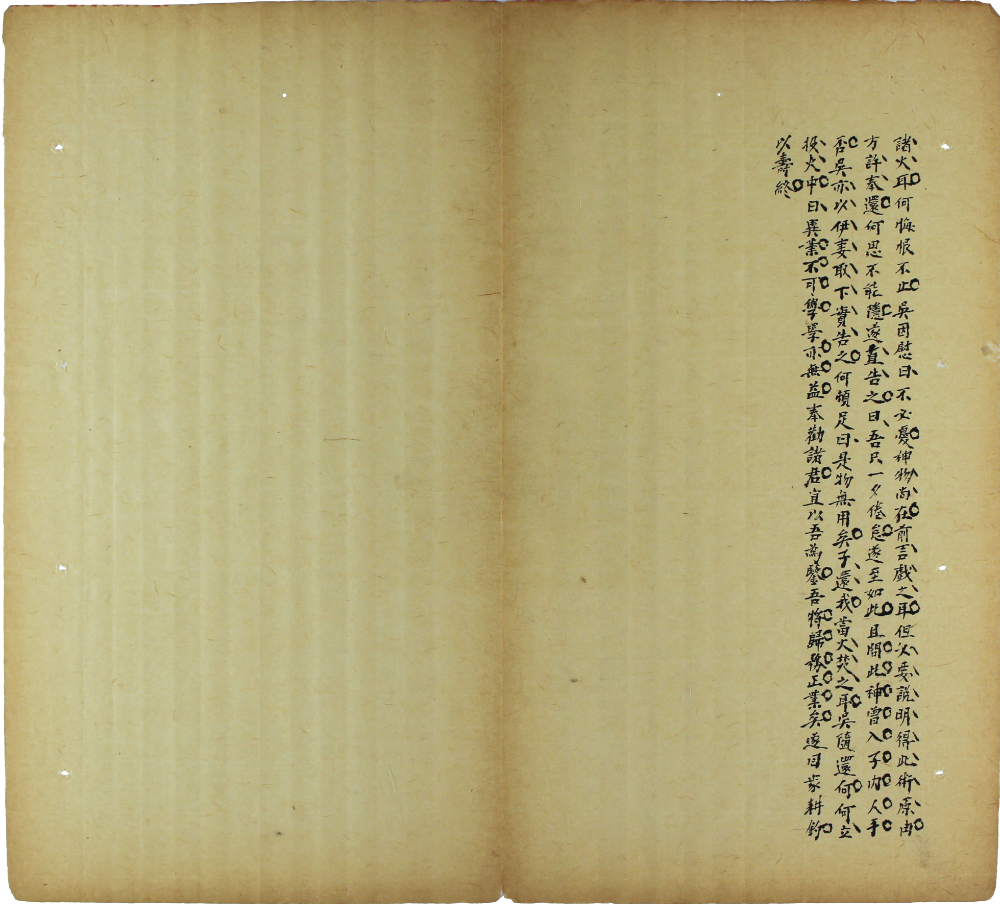 諸火耳何悔恨不止吳因慰曰不必憂神物尚在前言戲之耳但必要說明得此術原由
方許奉還何思不能隱遂直告之曰吾只一夕倦怠遂至如此且問此神曾入子內人手
否吳亦以伊妻取下實告之何頓足曰是物無用矣子還我當火焚之耳吳隨還何何立
投火中曰異業不可學學亦無益奉勸諸君宜以吾為鑒吾將歸務正業矣遂回家耕釣
以壽終